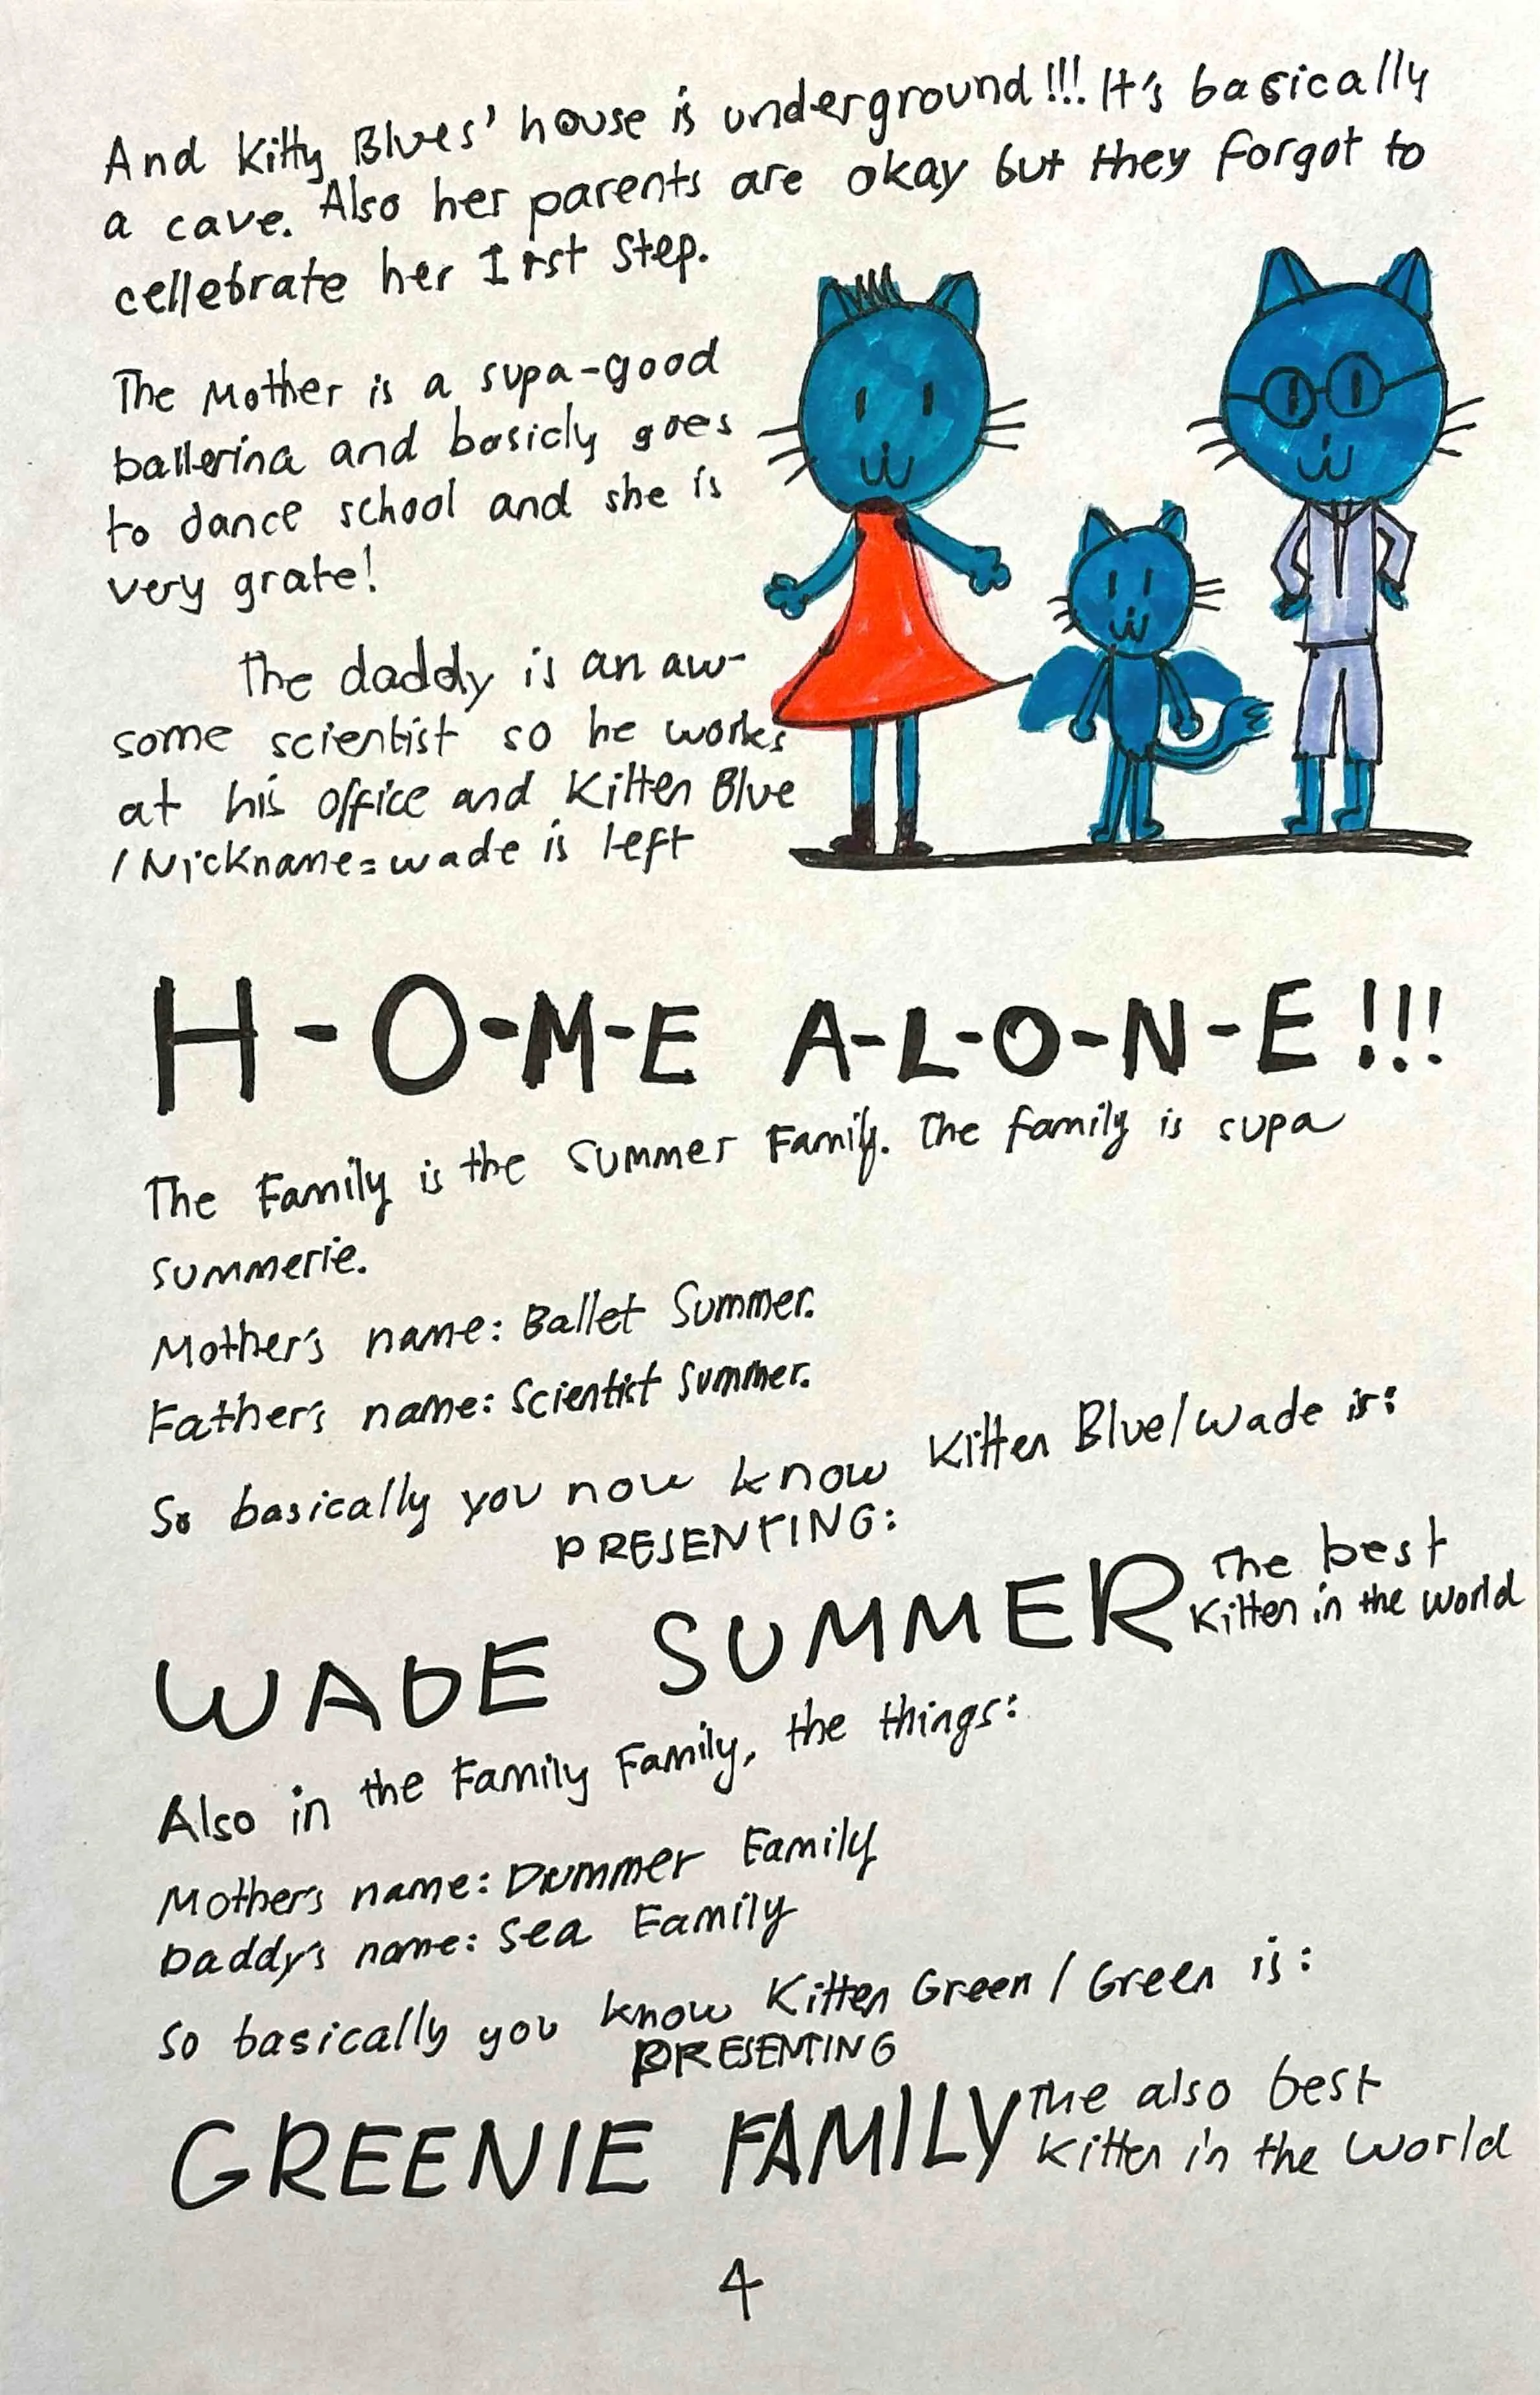 And Kitty Blues' house is underground!!! It's basically
a cave. Also her parents are okay but they forgot to
cellebrate her 1rst step.
The Mother is a supa-good
ballerina and basicly goes
to dance school and she is
very grate!
The daddy is an aw-
some scientist so he works
at his office and Kitten Blue
/Nickname=wade is left
H-O-M-E A-L-O-N-E!!!
The Family is the Summer Family. The family is supa
summerie.
Mother's name: Ballet Summer.
Father's name: Scientist Summer.
So basically you now know Kitten Blue/wade is:
PRESENTING:
WADE SUMMER The best
Kitten in the world
Also in the Family Family, the things:
Mother's name: Drummer Family
Daddy's name: Sea Family
So basically you know Kitten Green / Green is:
PRESENTING
GREENIE FAMILY The also best
Kitten in the world
4